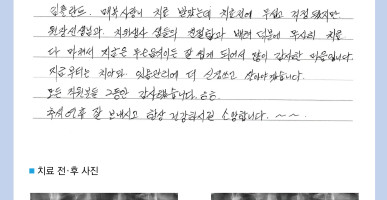 임플란트. 매복사랑니 치료 받았는데 치료전에 무섭고 걱정됐지만
원장선생님과 직원분들의 친절함과 배려 덕분에 무사히 치료
다 마쳐서 지금은 음식도 잘 씹게 되어서 많이 감사한 마음입니다.
치료부터는 치아와 잇몸관리에 더 신경쓰고 살아야겠습니다.
모든 직원분들 그동안 감사했습니다.
추석연휴 잘 보내시고 항상 건강하시길 소망합니다. ~~
■ 치료 전·후 사진